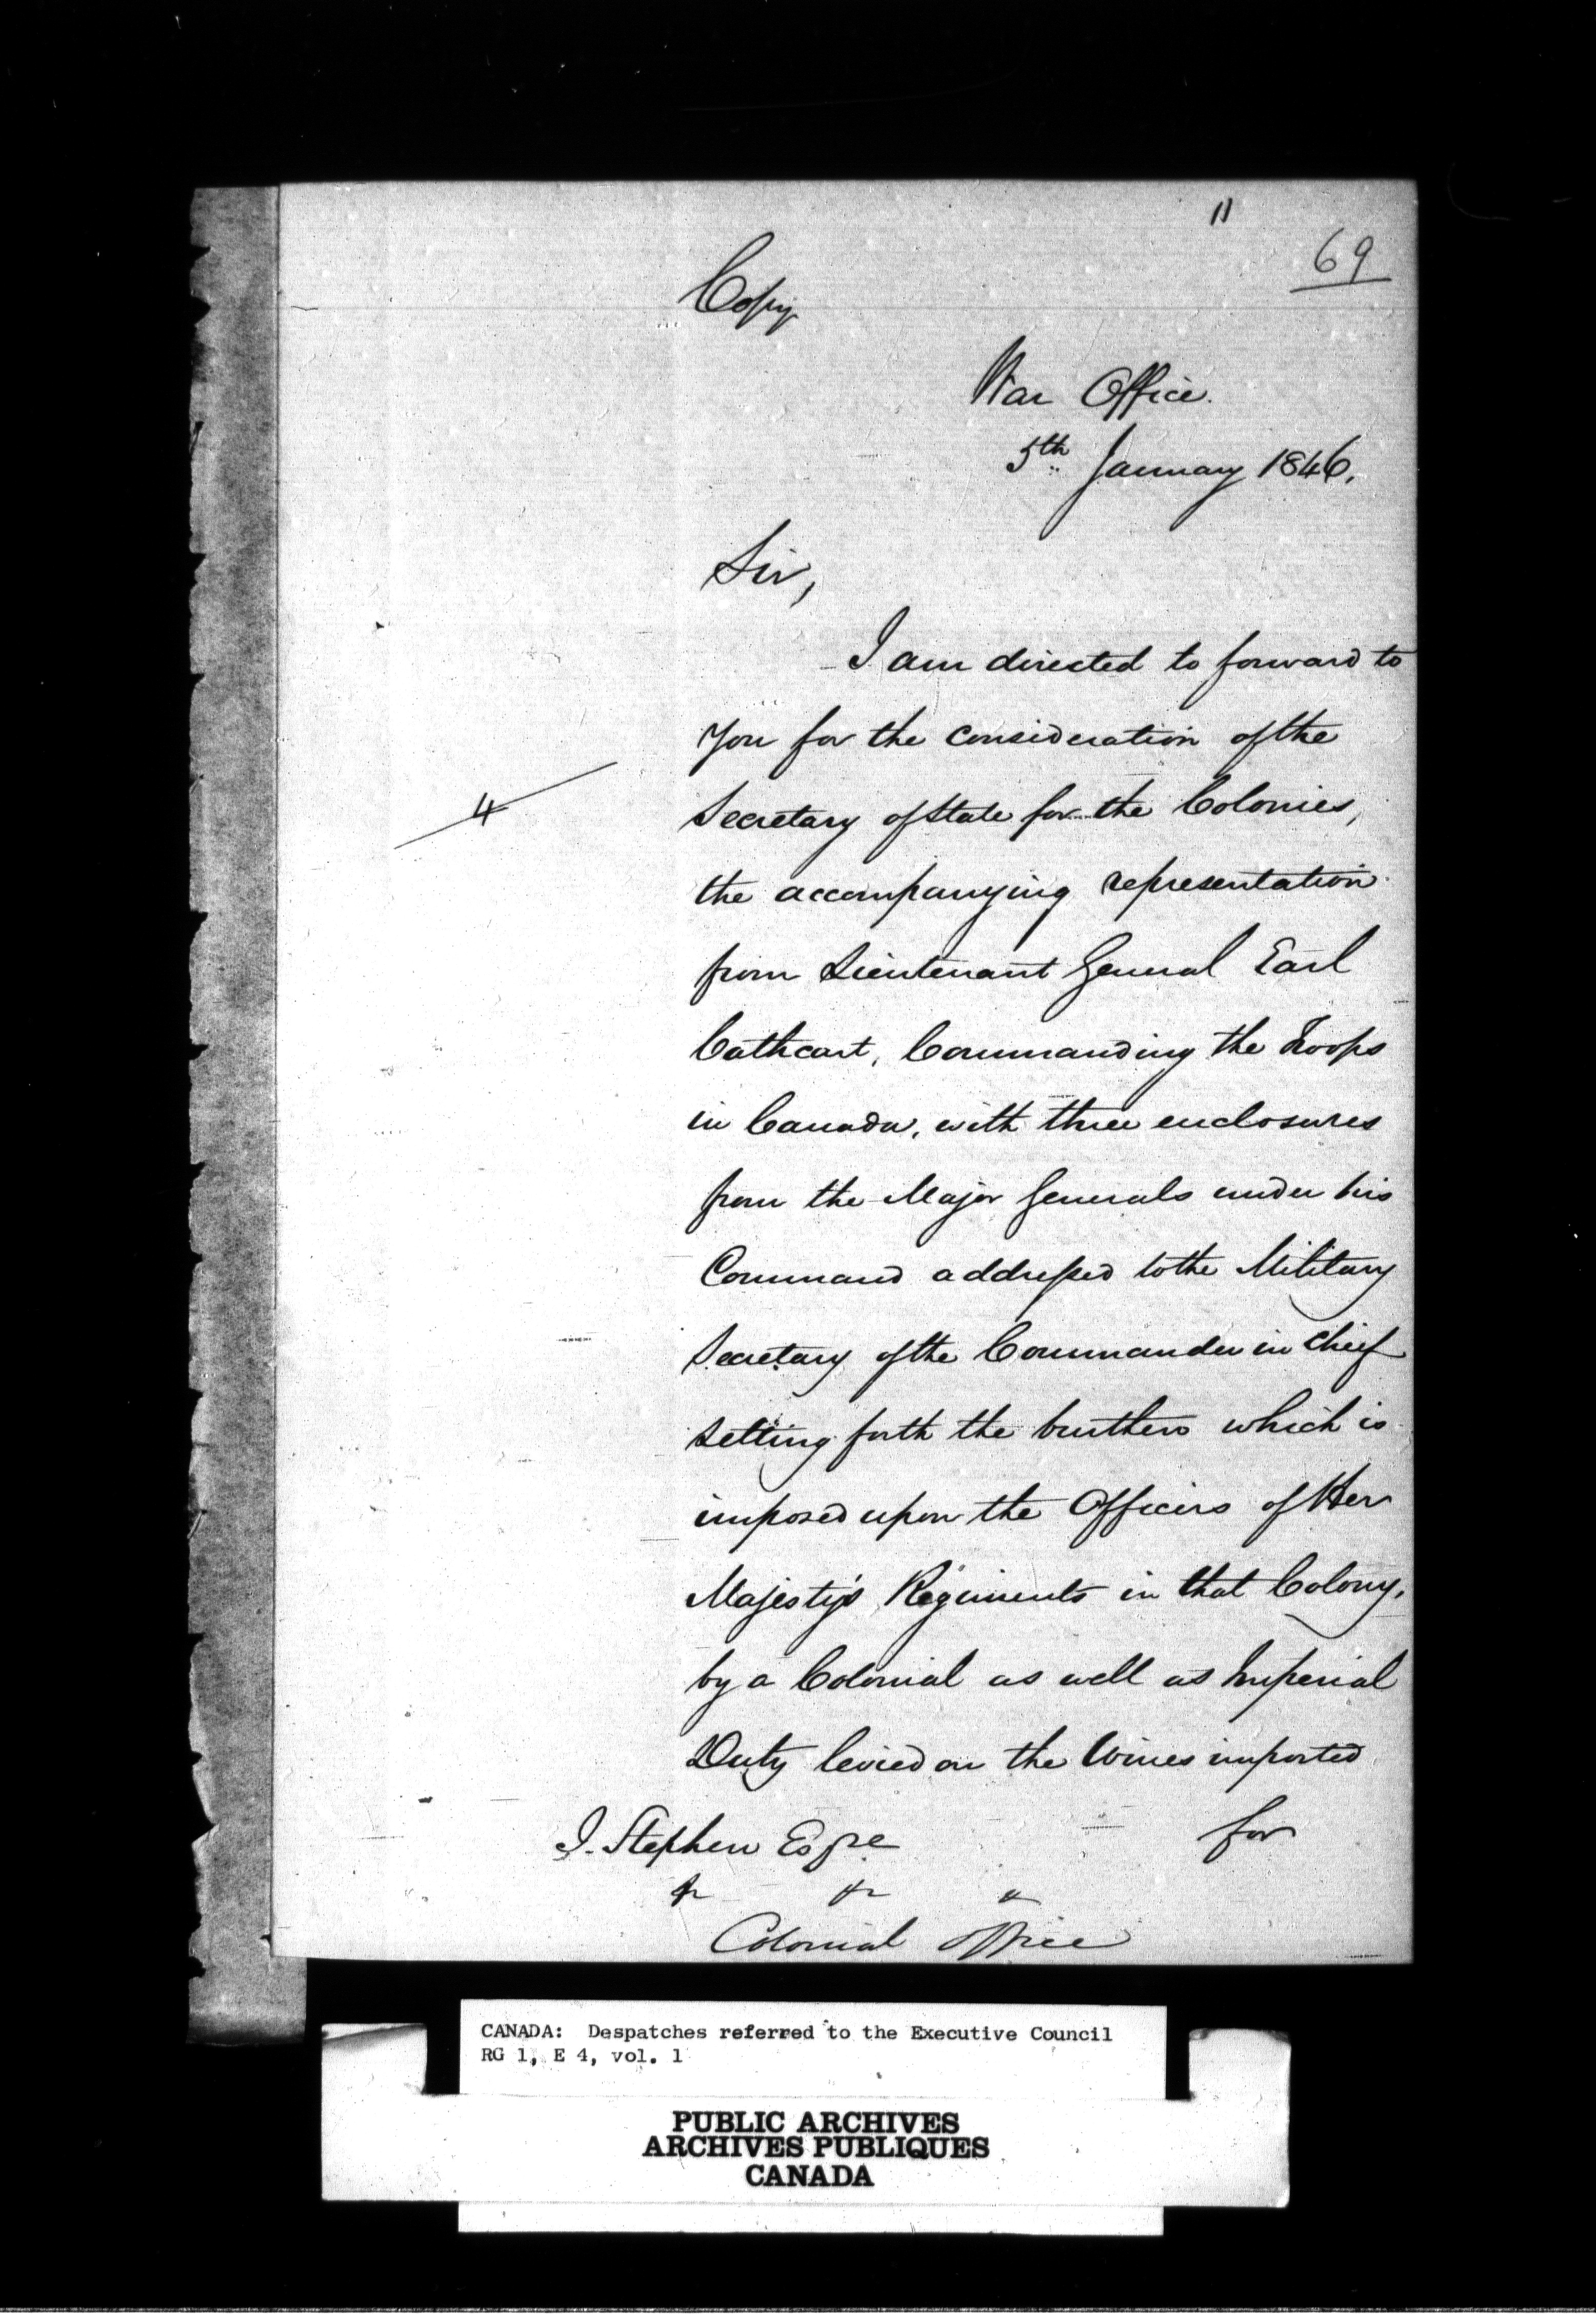 11
69
Copy
War Office.
5th January 1846.
Sir,
I am directed to forward to
you for the consideration of the
Secretary of State for the Colonies,
4
the accompanying representation
from Lieutenant General Earl
Cathcart, Commanding the Troops
in Canada, with three enclosures
from the Major Generals under his
Command addressed to the Military
Secretary of the Commander in Chief
setting forth the burthen which is
imposed upon the Officers of Her
Majesty's Regiments in that Colony,
by a Colonial as well as Imperial
Duty levied on the Wines imported
for
J. Stephen Esqre
&c &c &c
Colonial Office
CANADA: Despatches referred to the Executive Council
RG 1, E 4, vol. 1
PUBLIC ARCHIVES
ARCHIVES PUBLIQUES
CANADA